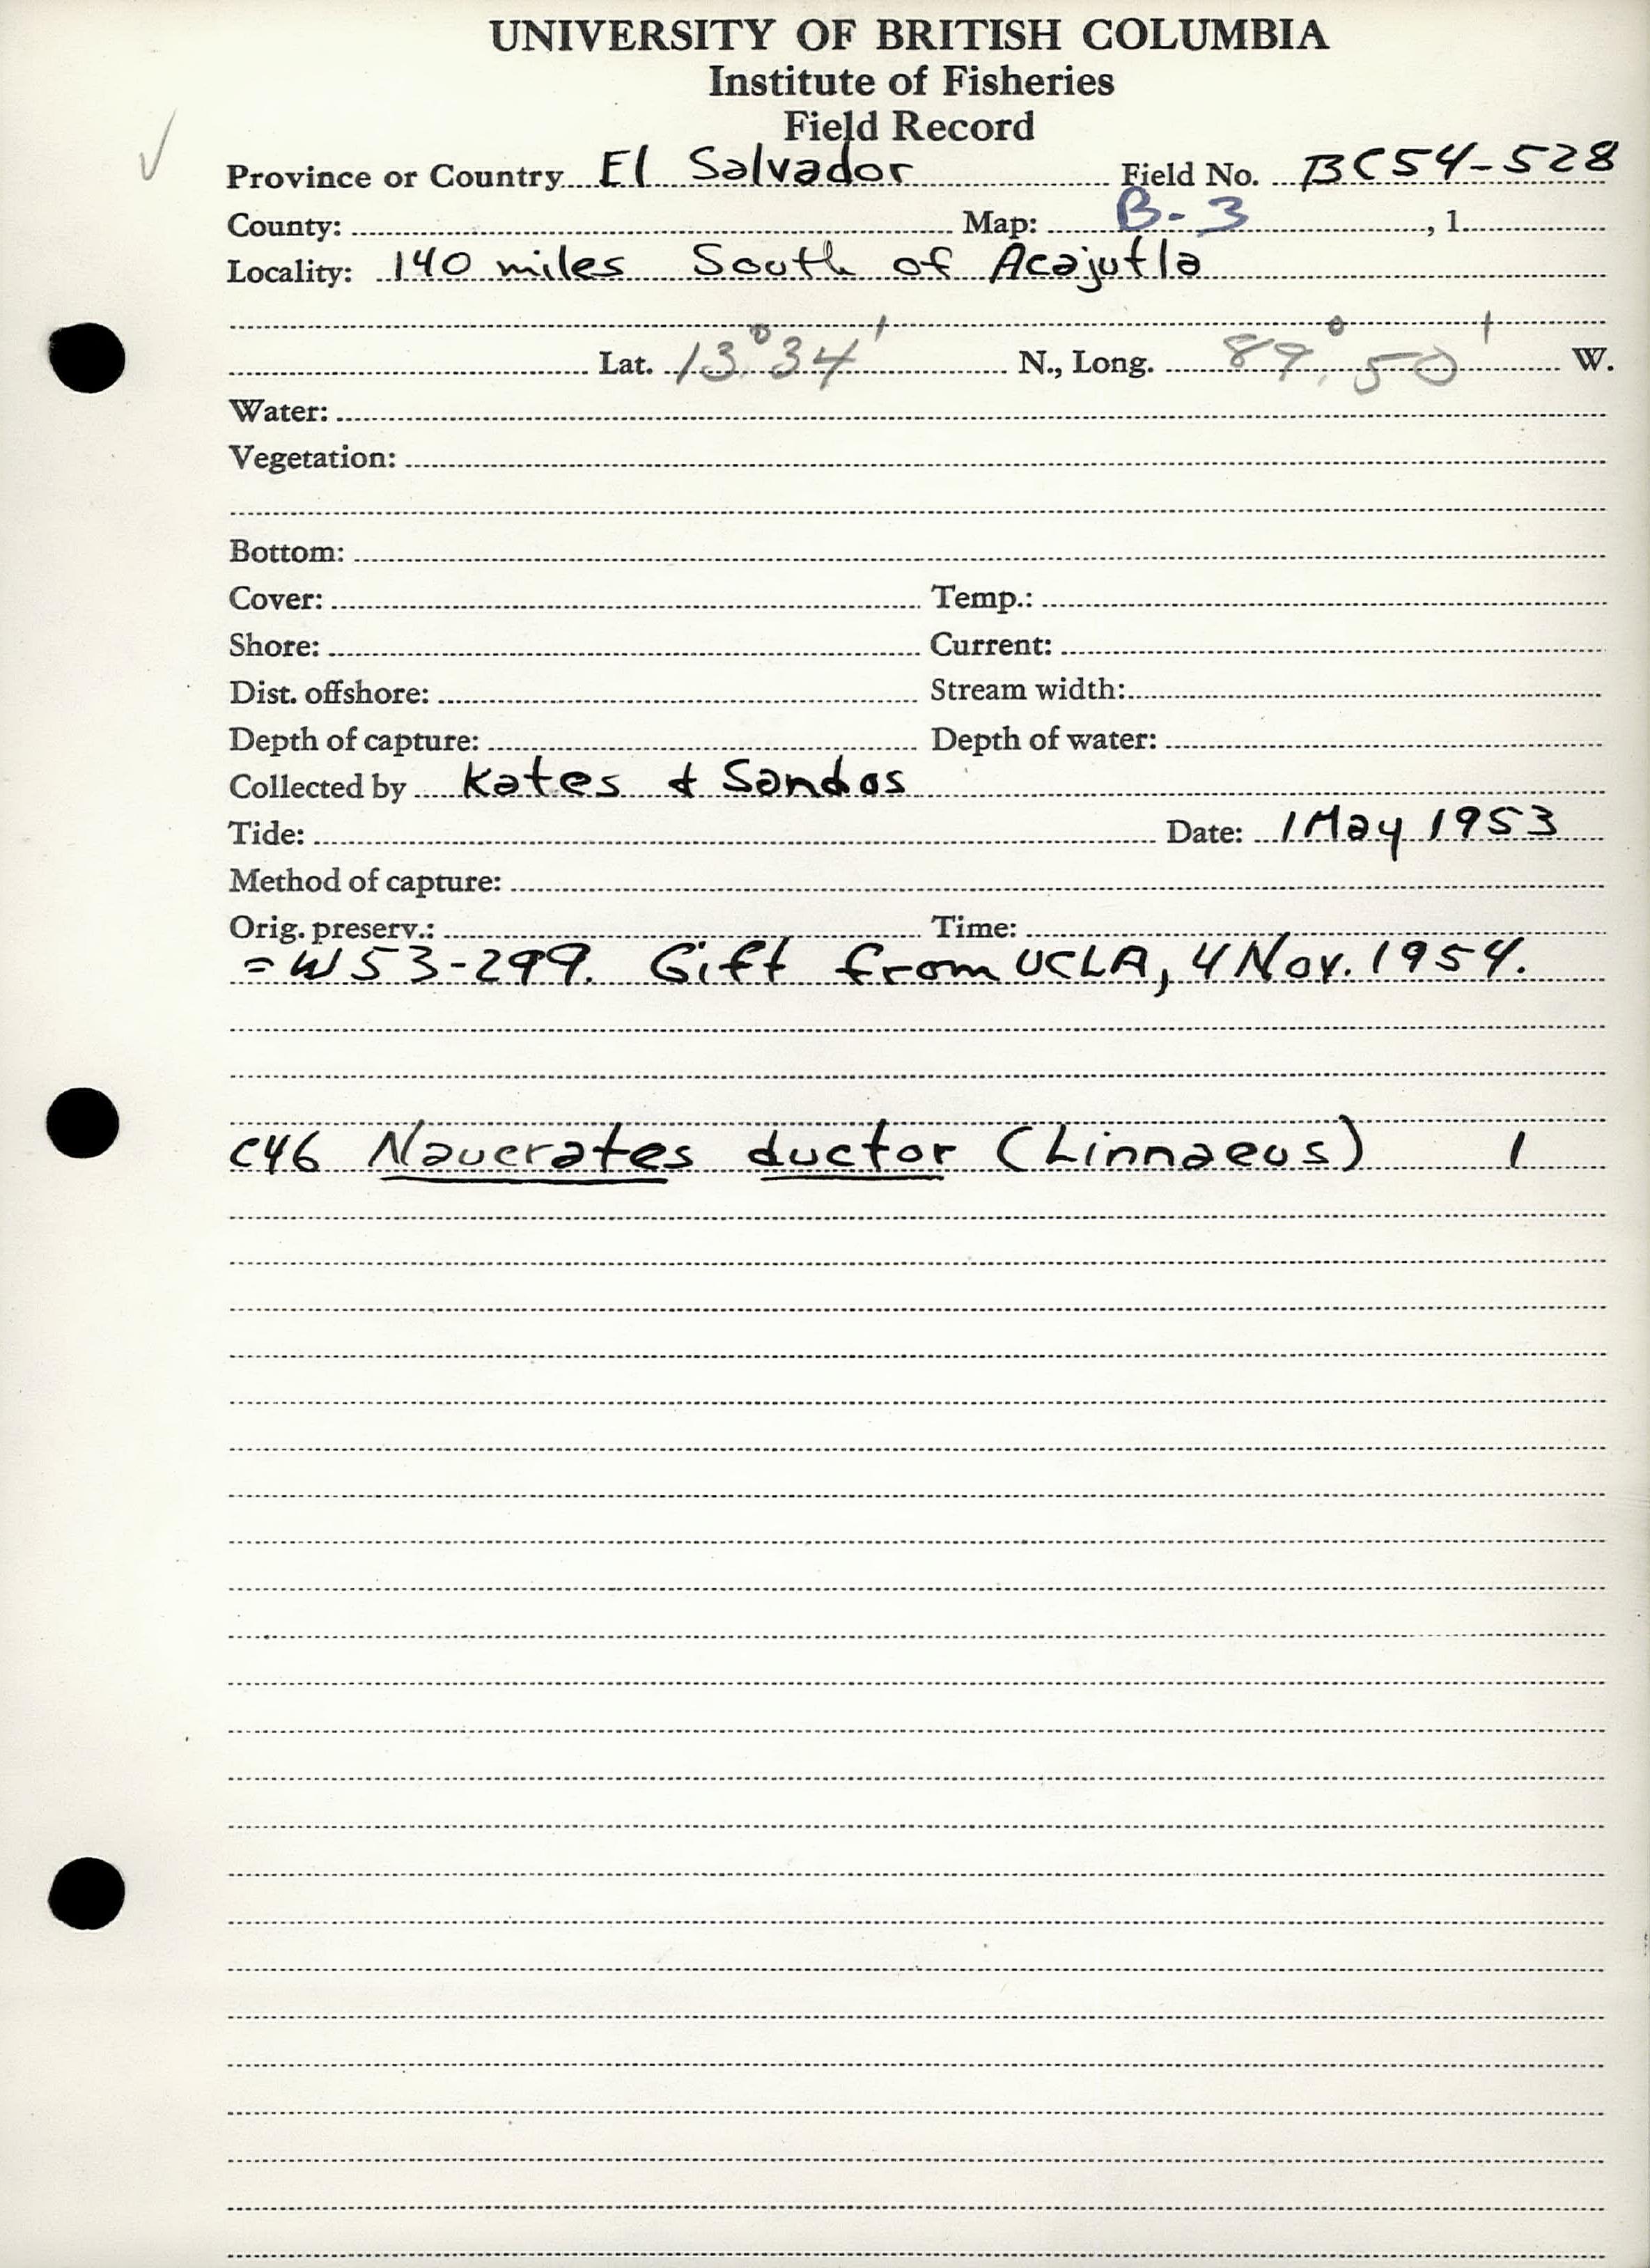 UNIVERSITY OF BRITISH COLUMBIA
Institute of Fisheries
Field Record
Province or Country El Salvador Field No. BC54-528
County: Map: B-3 , 1
Locality: 140 miles South of Acajutla
Lat. 13° 34' N., Long. 89° 50' W.
Water:
Vegetation:
Bottom:
Cover: Temp.:
Shore: Current:
Dist. offshore: Stream width:
Depth of capture: Depth of water:
Collected by Kates & Sandos
Tide: Date: 1 May 1953
Method of capture:
Orig. preserv.: Time:
= W53-299. Gift from UCLA, 4 Nov. 1954.
C46 Naucrates ductor (Linnaeus) 1